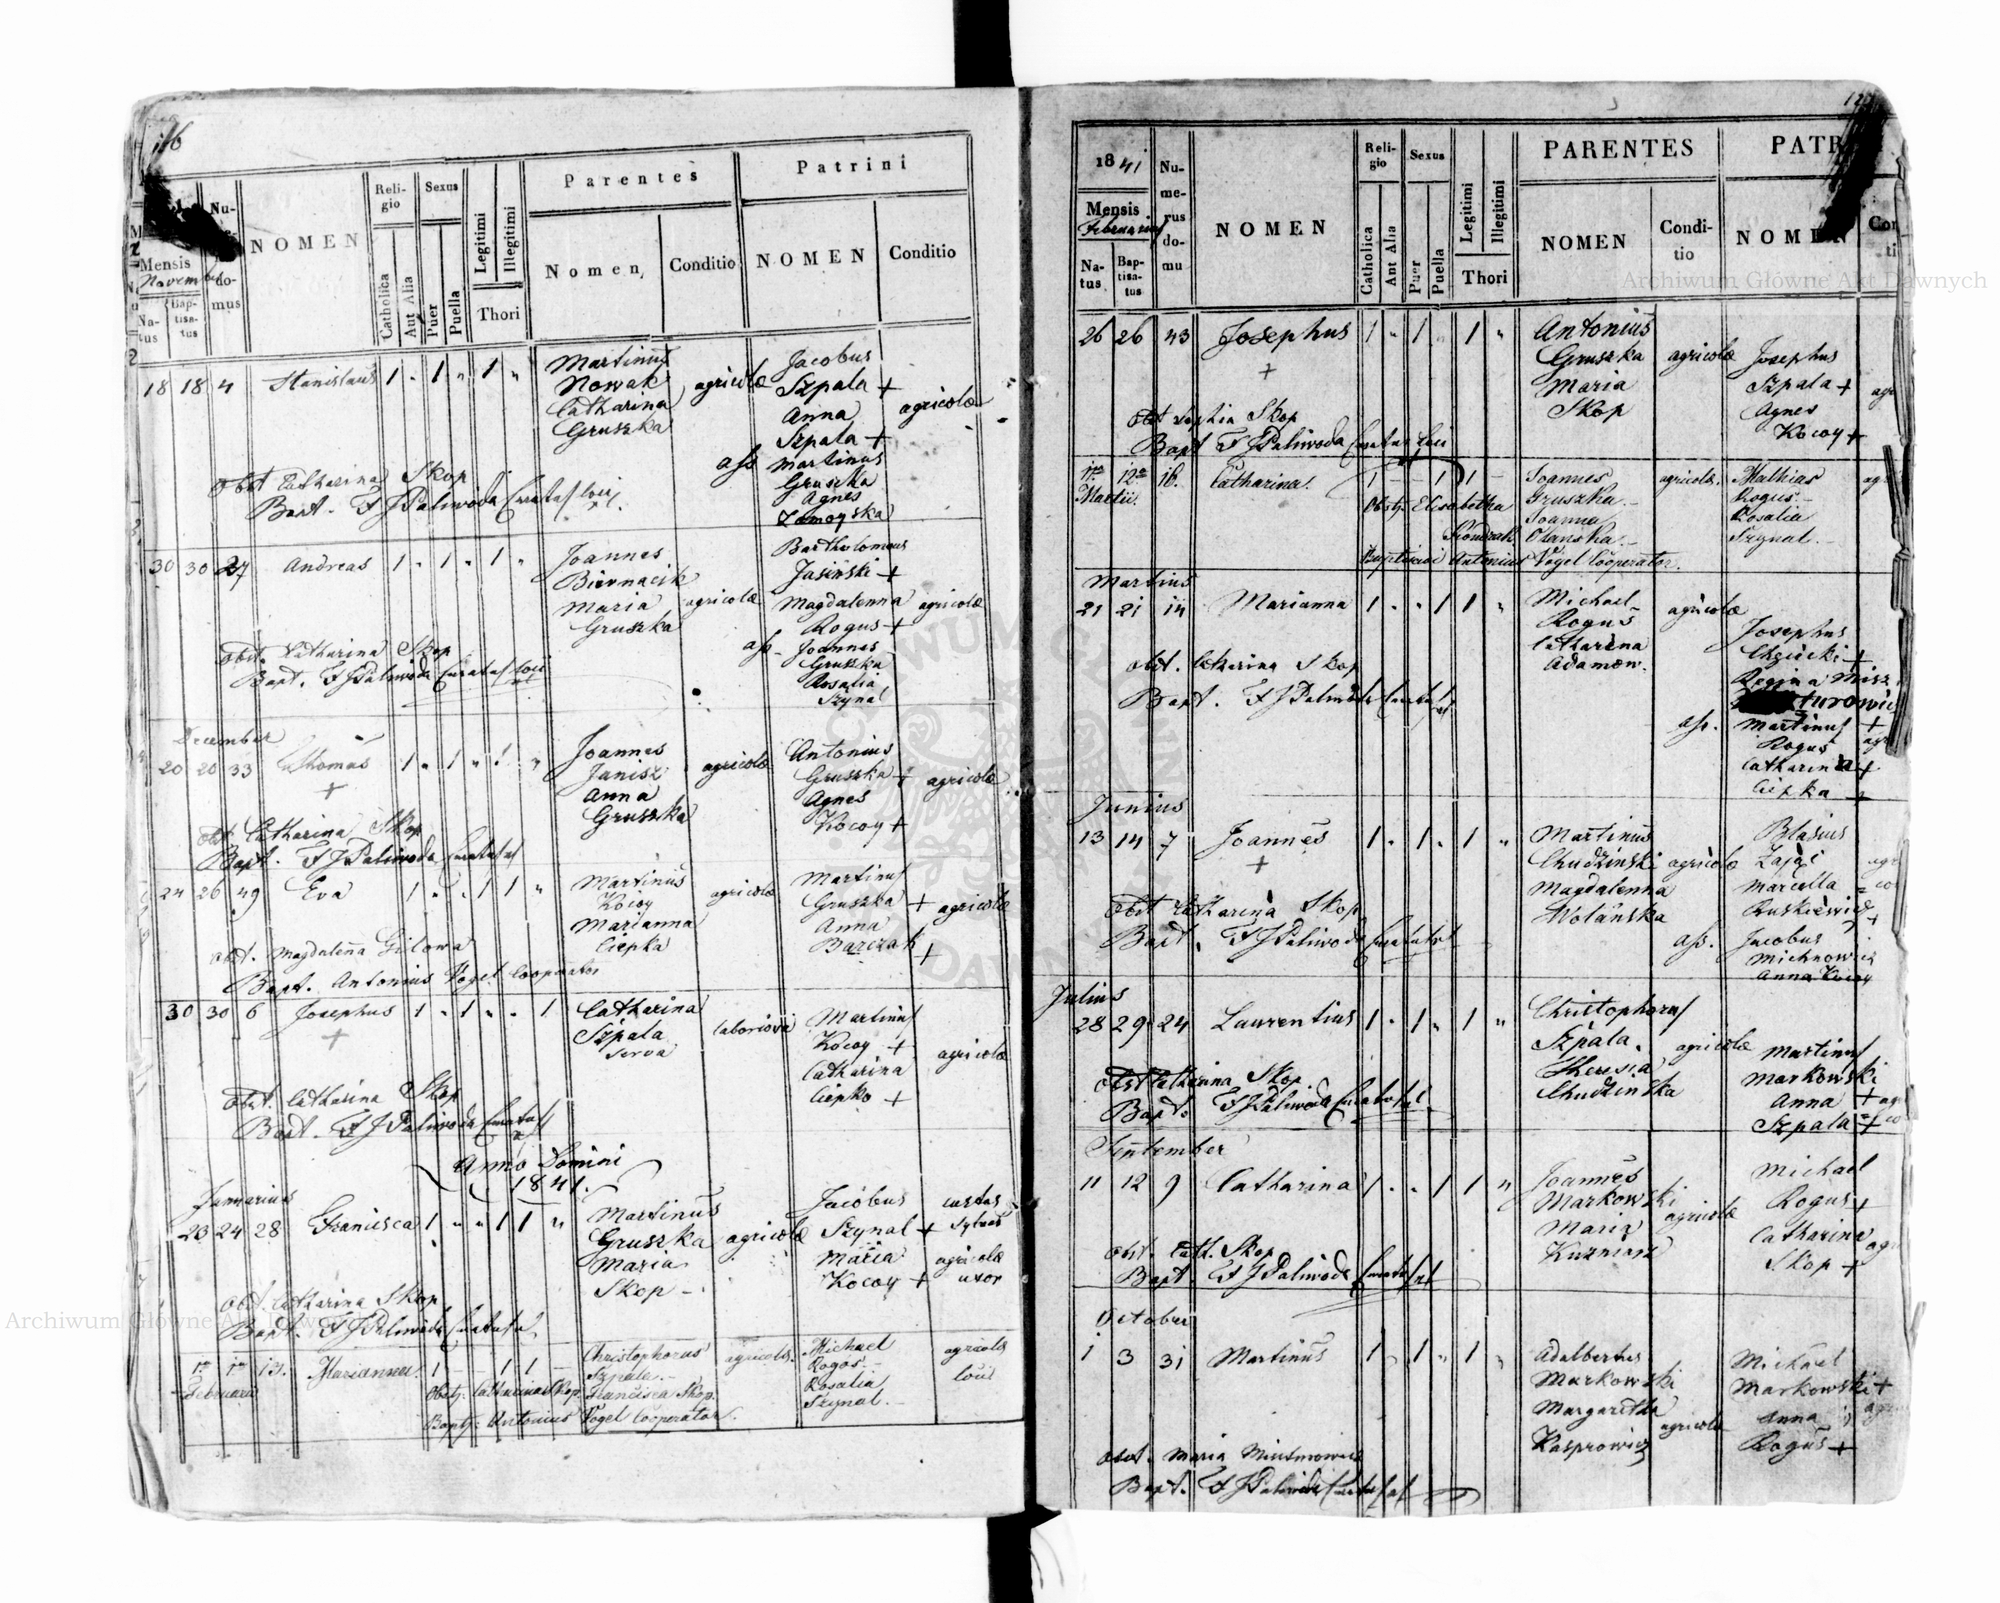 116
Mensis
Novemb
Na-
tus
Bap-
tisa-
tus
Nu-
do-
mus
NOMEN
Reli-
gio
Catholica
Aut Alia
Sexus
Puer
Puella
Legitimi
Illegitimi
Thori
Parentes
Nomen
Conditio
Patrini
NOMEN
Conditio
18 18 4 Stanislaus 1 " 1 " 1 "
Martinus
Nowak
Catharina
Gruszka
agricolæ
Jacobus
Szpala +
Anna
Szpala +
agricolæ
ass Martinus
Gruszka
Agnes
Zamoyska
Obst Catharina Skop
Bapt. F J Paliwoda Curatus loci
30 30 27 Andreas 1 " 1 " 1 "
Joannes
Biernacik
Maria
Gruszka
agricolæ
Bartholomeus
Jasiński +
Magdalenna
Rogus +
agricolæ
ass. Joannes
Gruszka
Rosalia
Szynal
Obst. Catharina Skop
Bapt. F J Paliwoda Curatus loci
December
20 20 33 Thomas 1 " 1 " 1 "
+
Joannes
Janisz
Anna
Gruszka
agricolæ
Antonius
Gruszka +
Agnes
Kocoy +
agricolæ
Obst Catharina Skop
Bapt. F J Paliwoda Curatus
24 26 49 Eva 1 " " 1 1 "
Martinus
Kocoy
Marianna
Ciepka
agricolæ
Martinus
Gruszka +
Anna
Barczak +
agricolæ
obst. Magdalena Gilowa
Bapt. Antonius Vogel Cooperator
30 30 6 Josephus 1 " 1 " " 1
+
Catharina
Szpala
serva
laboriosa
Martinus
Kocoy +
Catharina
Ciepko +
agricolæ
Obst. Catharina Skop
Bapt. F J Paliwoda Curatus
Anno Domini
1841.
Januarius
23 24 28 Francisca 1 " " 1 1 "
Martinus
Gruszka
Maria
Skop
agricolæ
Jacobus
Szynal +
Maria
Kocoy +
custos
sylvae
agricolæ
uxor
Obst. Catharina Skop
Bapt. F J Paliwoda Curatus
1a 1a 13. Marianna. 1 – – 1 1 –
Februarii
Christophorus
Szpala.
Francisca Skop.
agricolæ.
Michael
Rogos.
Rosalia
Szynal.
agricolæ
loci
Obstz. Catharina Skop.
Baptz. Antonius Vogel Cooperator.
1841
Mensis
Februarius
Na-
tus
Bap-
tisa-
tus
Nu-
me-
rus
do-
mu
NOMEN
Reli-
gio
Catholica
Aut Alia
Sexus
Puer
Puella
Legitimi
Illegitimi
Thori
PARENTES
NOMEN
Condi-
tio
PATR
NOMEN
Con
ti
26 26 43 Josephus 1 " 1 " 1 "
+
Antonius
Gruszka
Maria
Skop
agricolæ
Josephus
Szpala +
Agnes
Kocoy +
Obst Sophia Skop
Bapt F J Paliwoda Curatus loci
11a 12a 16. Catharina. 1 – – 1 1 –
Martii.
Joannes
Gruszka.
Joanna
Olanska.
agricolæ.
Mathias
Rogus.
Rosalia
Szynal.
Obstz. Elisabetha
Baptisavi Antonius Vogel Cooperator.
Martius
21 21 14 Marianna 1 " " 1 1 "
Michael
Rogus
Catharina
Adamow.
agricolæ
Josephus
Regina
turowic
ass. Martinus +
Rogus
Catharina +
Ciepka +
Obst. Catharina Skop
Bapt. F J Paliwoda Curatus
Junius
13 14 7 Joannes 1 " 1 " 1 "
+
Martinus
Chudzinski
Magdalenna
Wolanska
agricolæ
Blasius
Zając
Marcella
Ruskiewicz +
ass. Jacobus
Michnowicz
Anna Kocoy
Obst Catharina Skop
Bapt. F J Paliwoda Curatus
Julius
28 29 24 Laurentius 1 " 1 " 1 "
Christophorus
Szpala.
Theresia
Chudzinska
agricolæ
Martinus
Markowski
Anna +
Szpala +
Obst Catharina Skop
Bapt. F J Paliwoda Curatus
September
11 12 9 Catharina 1 " " 1 1 "
Joannes
Markowski
Maria
Kuzniasz
agricolæ
Michael
Rogus +
Catharina
Skop +
Obst. Cath. Skop
Bapt. F J Paliwoda Curatus
October
1 3 31 Martinus 1 " 1 " 1 "
Adalbertus
Markowski
Margaretha
Kasprowicz
agricolæ
Michael
Markowski +
Anna
Rogus +
Obst. Maria Michnowicz
Bapt. F J Paliwoda Curatus
Archiwum Główne Akt Dawnych
Archiwum Główne Akt Dawnych